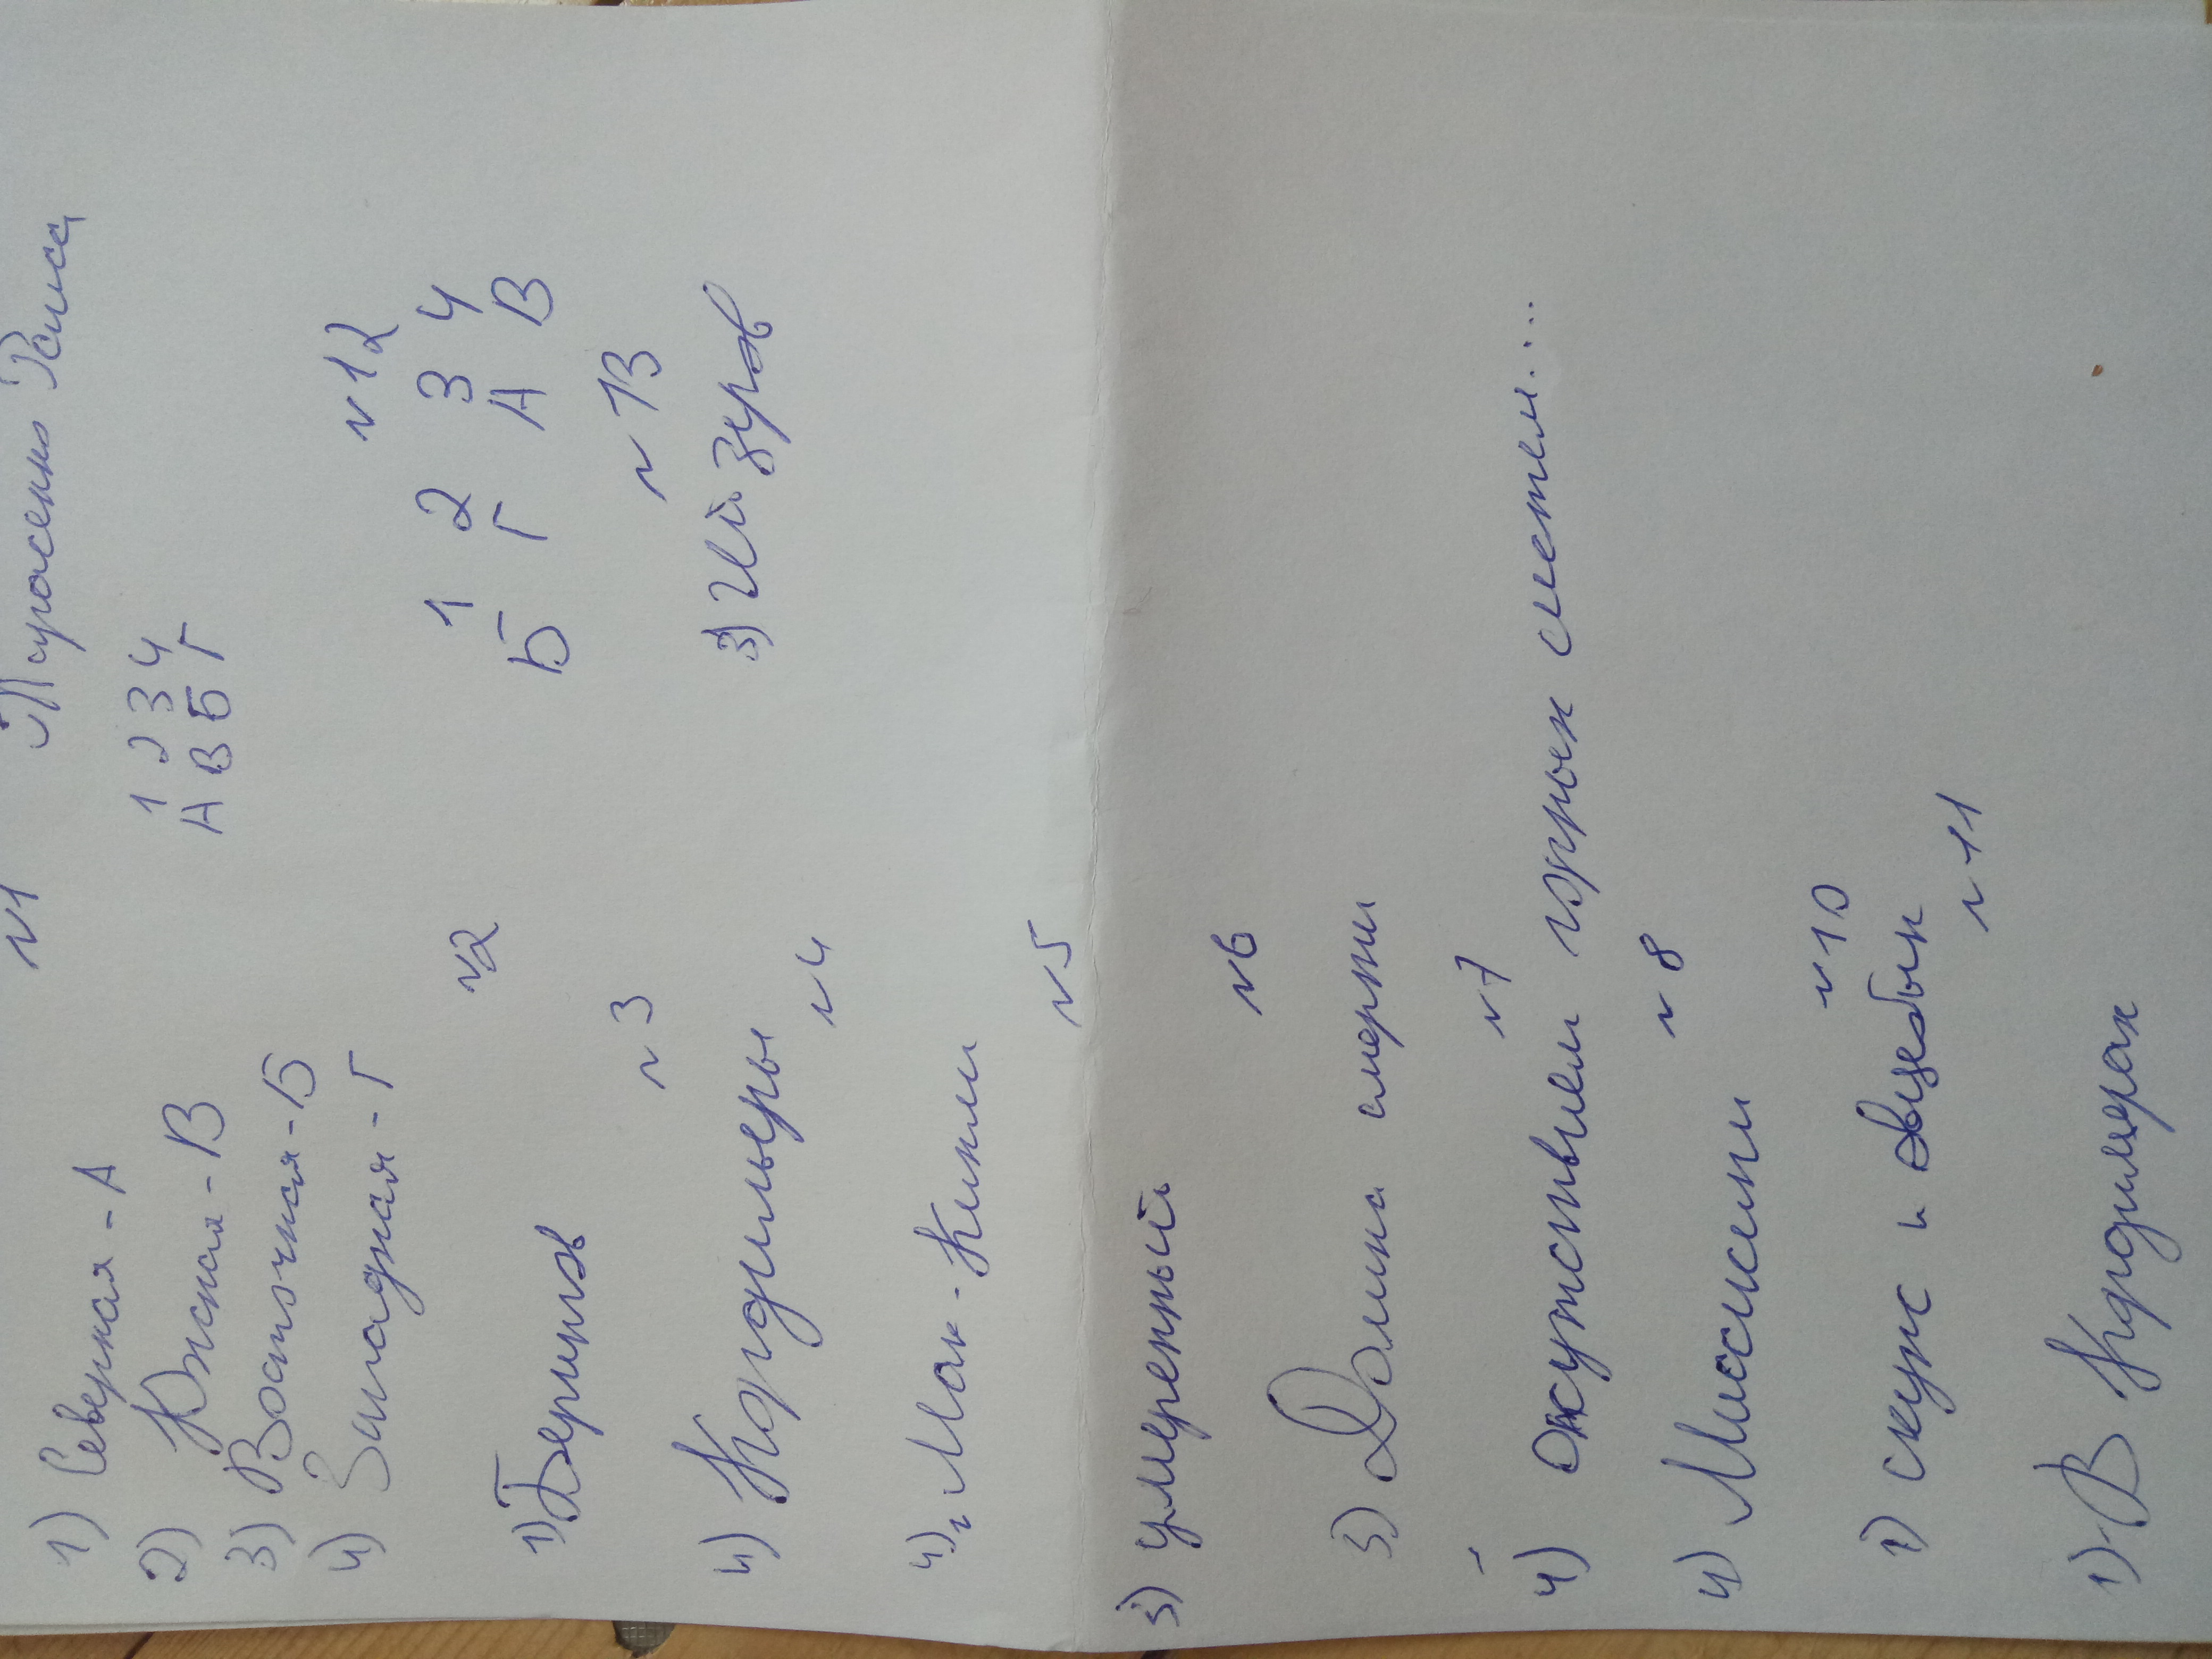 №1 Тарасенко
1 2 3 4
А В Б Г
1) Северная - А
2) Южная - В
3) Восточная - Б
4) Западная - Г
№2
1) Берингов
№3
4) Кордильеры
№4
4) г. Мак-Кинли
№5
3) умеренный
№6
3) Долина смерти
№7
4) отсутствием горных систем...
№8
4) Миссисипи
№10
1) скунс и овцебык
№11
1) В Кордильерах
№12
1 2 3 4
Б Г А В
№13
3)